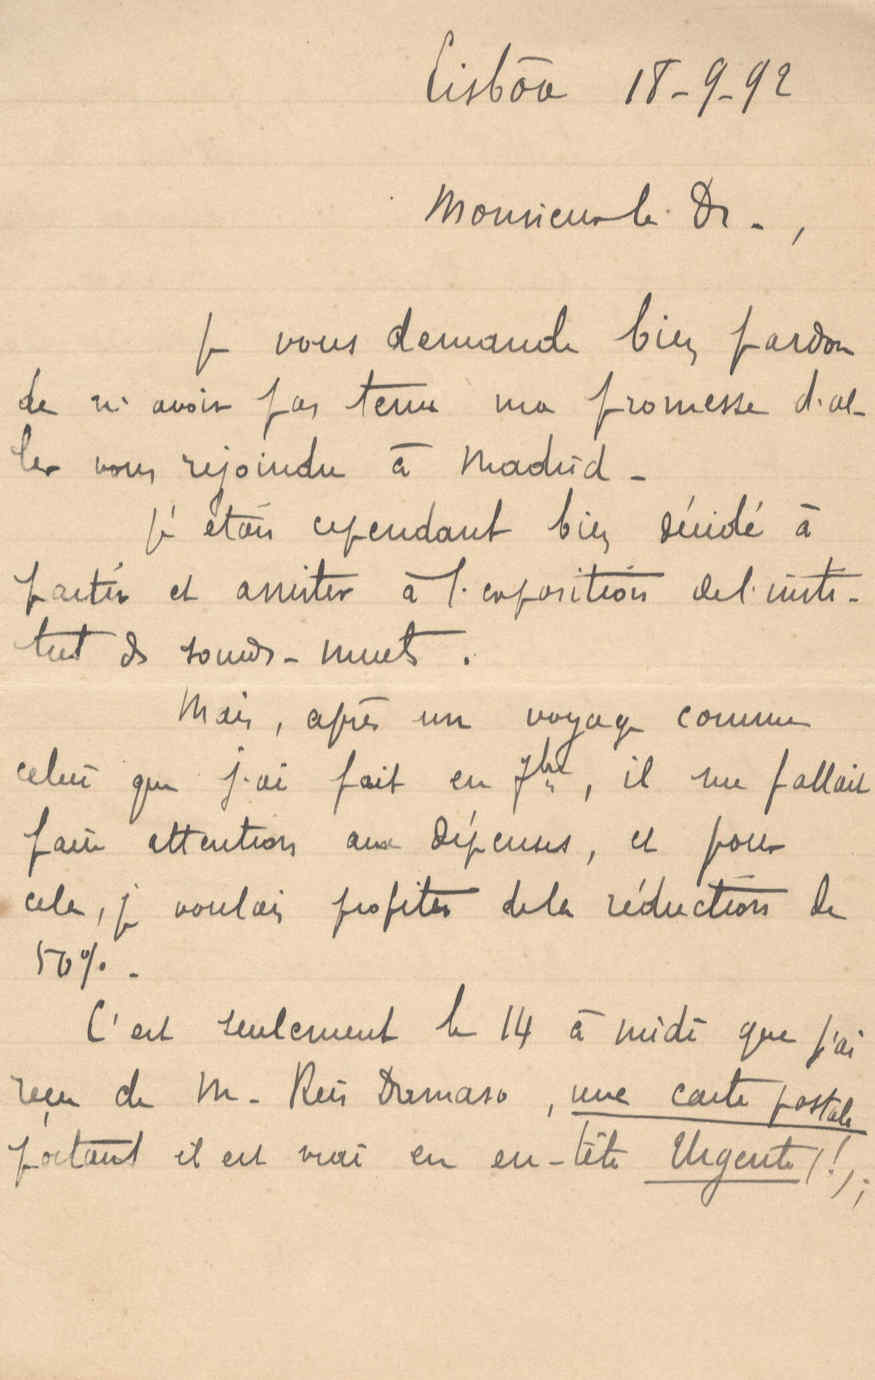 Lisbôa 18-9-92
Monsieur le Dr.,
Je vous demande bien pardon
de n'avoir pas tenu ma promesse d'al-
ler vous rejoindre à Madrid -
J'étais cependant bien décidé à
partir et assister à l'exposition de l'insti-
tut de sourds-muets.
Mais, après un voyage comme
celui que j'ai fait en 7bre, il me fallait
faire attention aux dépenses, et pour
cela, je voulais profiter de la réduction de
50%. -
C'est seulement le 14 à midi que j'ai
reçu de M. Reis Damaso, une carte postale
portant il est vrai en en-tête Urgente (!);